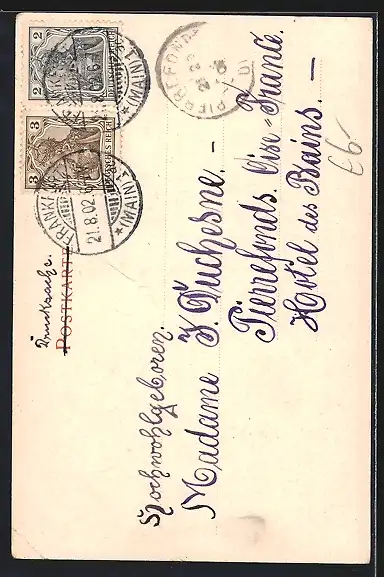 Drucksache.
POSTKARTE
Hochwohlgeboren.
Madame J. Duchesne. –
Pierrefonds. Oise – France.
Hotel des Bains. –
2
3
DEUTSCHES REICH
FRANKFURT
(MAIN) 1
21.8.02.
PIERREFONDS
€6-